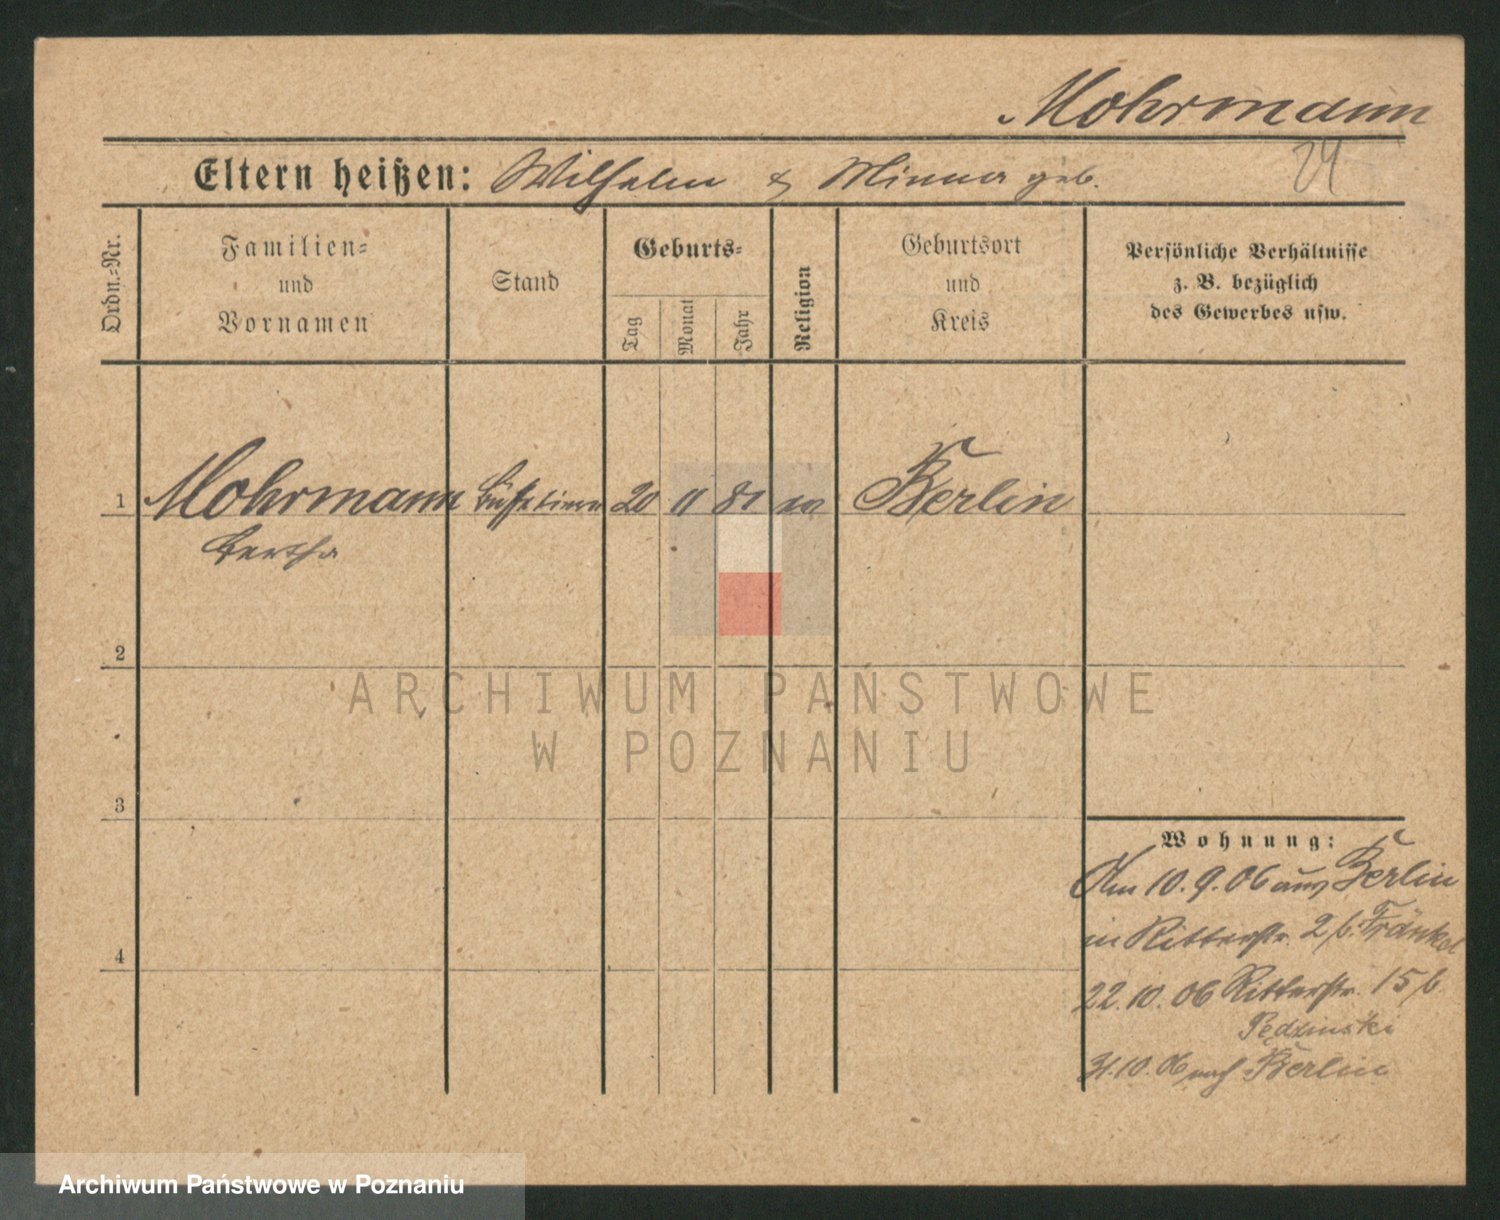 Mohrmann
24
Eltern heißen: Wilhelm & Minna geb.
Ordn.=Nr.
Familien=
und
Vornamen
Stand
Geburts=
Tag
Monat
Jahr
Religion
Geburtsort
und
Kreis
Persönliche Verhältnisse
z. B. bezüglich
des Gewerbes usw.
1 Mohrmann 20 11 81 Berlin
Bertha
2
3
4
Wohnung:
Am 10.9.06 aus Berlin
in Ritterstr. 2 b. Fränkel
22.10.06 Ritterstr. 15 b.
Pędzinski
31.10.06 nach Berlin
ARCHIWUM PAŃSTWOWE
W POZNANIU
Archiwum Państwowe w Poznaniu